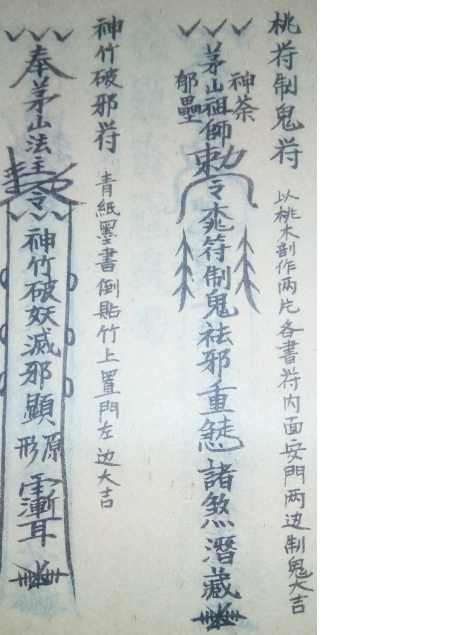 桃符制鬼符
以桃木剖作两片各書符内面安門两边制鬼大吉
神荼
茅山祖師勅令桃符制鬼祛邪重愆諸煞潛藏
郁壘
神竹破邪符
青紙墨書倒貼竹上置門左边大吉
奉茅山法主勅令神竹破妖滅邪顯原形